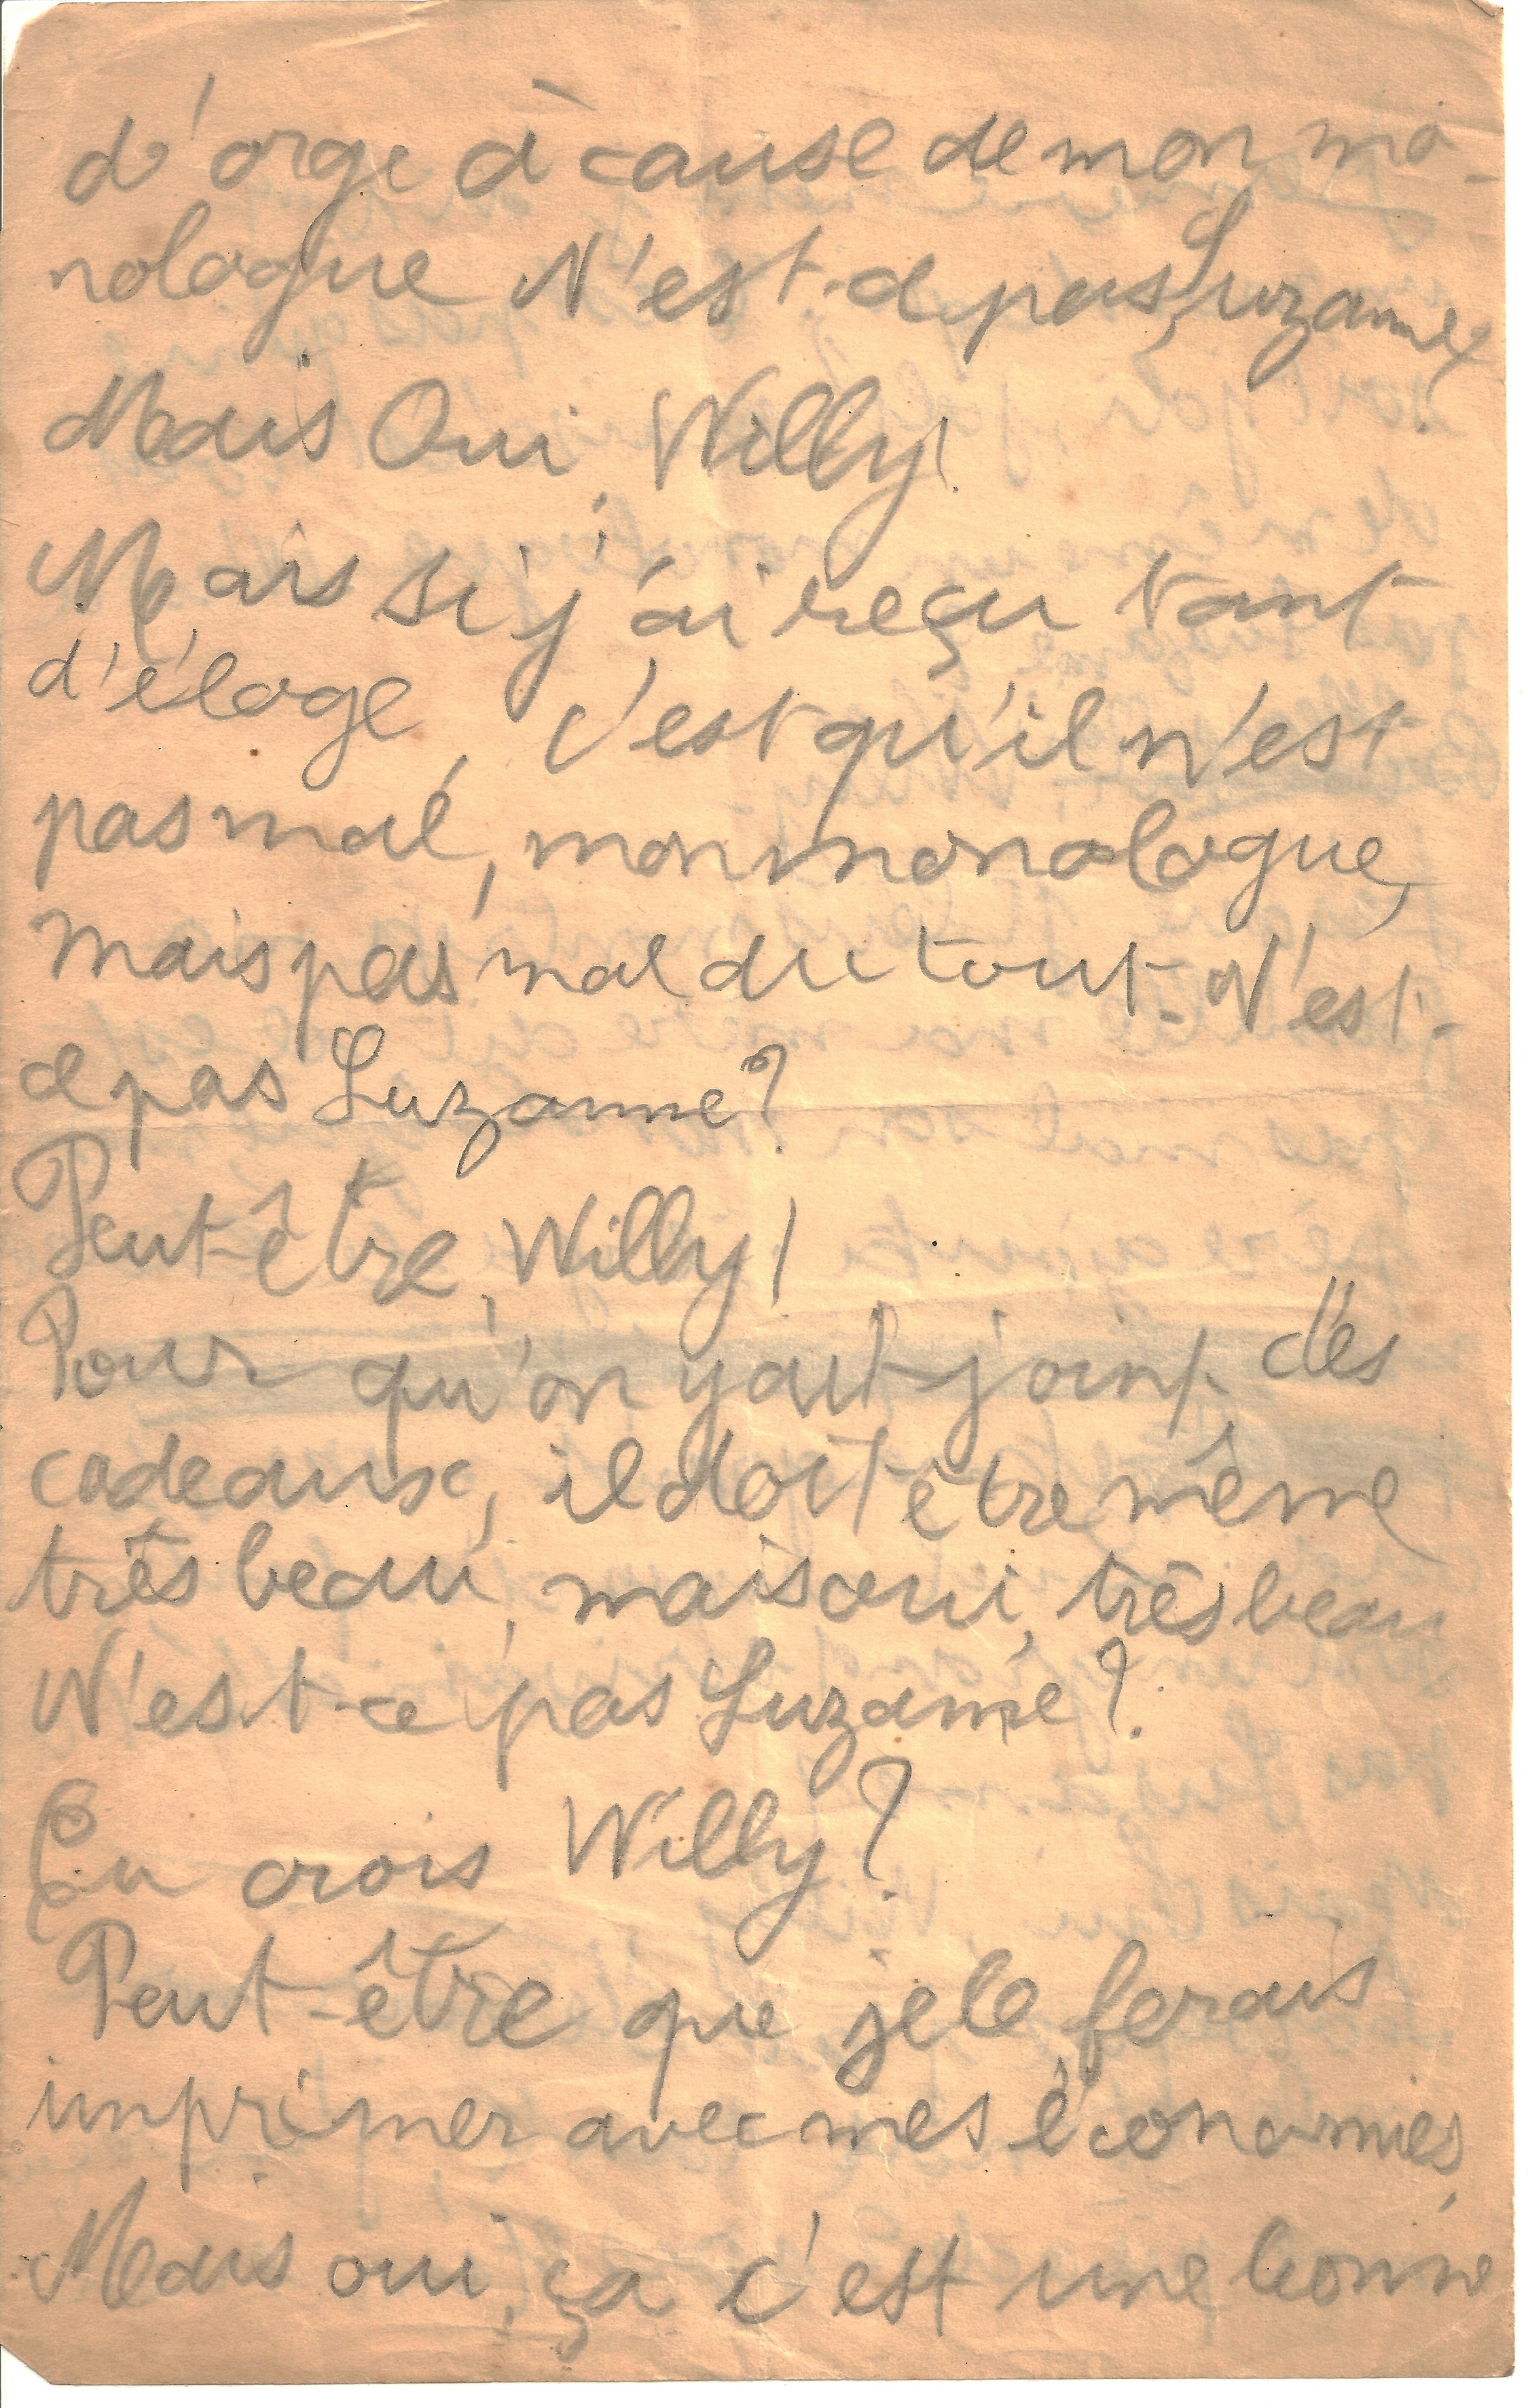 d'orge à cause de mon mo-
nologue N'est-ce pas, Suzanne?
Mais Oui, Willy!
Mais si j'ai reçu tant
d'éloge, c'est qu'il n'est
pas mal, mon monologue,
mais pas mal du tout. N'est-
ce pas Suzanne?
Peut-être, Willy!
Pour qu'on y ait joint des
cadeaux, il doit être même
très beau, mais oui, très beau
N'est-ce pas Suzanne?
Tu crois Willy?
Peut-être que je le ferais
imprimer avec mes économies,
Mais oui, ça c'est une bonne